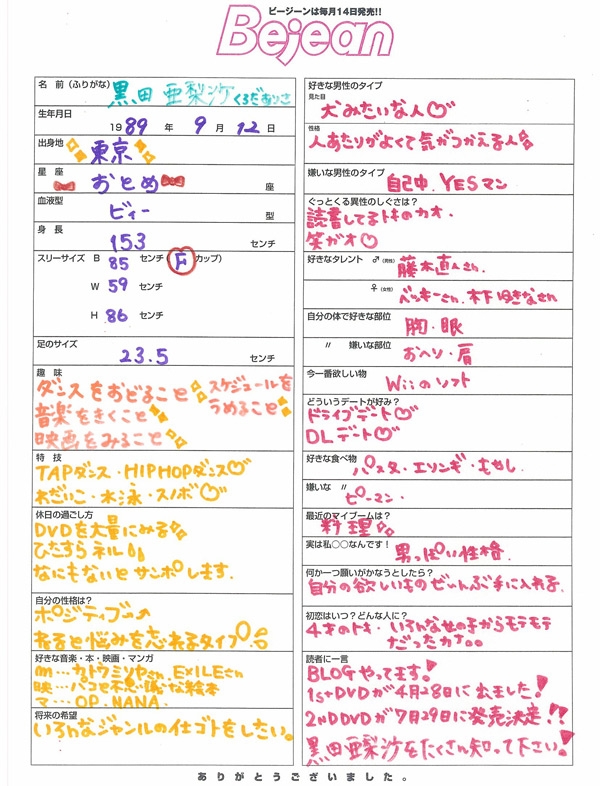 ビージーンは毎月14日発売!!
Bejean
名 前 (ふりがな) 黒田 亜梨沙 くろだありさ
生年月日
1989 年 9 月 12 日
出身地
東京
星 座
おとめ 座
血液型
ビィー 型
身 長
153 センチ
スリーサイズ B 85 センチ (F カップ)
W 59 センチ
H 86 センチ
足のサイズ
23.5 センチ
趣 味
ダンスをおどること スケジュールを
音楽をきくこと うめること
映画をみること
特 技
TAPダンス・HIPHOPダンス
わだいこ・水泳・スノボ
休日の過ごし方
DVDを大量にみる
ひたすらネル
なにもないとサンポします。
自分の性格は?
ポジティブ
ねると悩みを忘れるタイプ
好きな音楽・本・映画・マンガ
m…カトウミリヤさん、EXILEさん
映…パコと不思議な絵本
マ…OP.NANA.
将来の希望
いろんなジャンルの仕ゴトをしたい。
好きな男性のタイプ
見た目
犬みたいな人
性格
人あたりがよくて気がつかえる人
嫌いな男性のタイプ
自己中、YESマン
ぐっとくる異性のしぐさは?
読書してるトキのカオ、
笑ガオ
好きなタレント ♂(男性) 藤木直人さん、
♀(女性) ベッキーさん、木下ゆきなさん
自分の体で好きな部位
胸・眼
〃 嫌いな部位
おヘソ・肩
今一番欲しい物
Wiiのソフト
どういうデートが好み?
ドライブデート
DLデート
好きな食べ物
パスタ・エリンギ・もやし、
嫌いな 〃
ピーマン、
最近のマイブームは?
料理
実は私○○なんです!
男っぽい性格、
何か一つ願いがかなうとしたら?
自分の欲しいものぜいんぶ手に入れる。
初恋はいつ?どんな人に?
4才のトキ、いろんな女の子からモテモテ
だったカナ。。
読者に一言
BLOGやってます!
1stDVDが4月28日に出ました!
2ndDVDが7月29日に発売決定!!
黒田亜梨沙をたくさん知って下さい!
ありがとうございました。